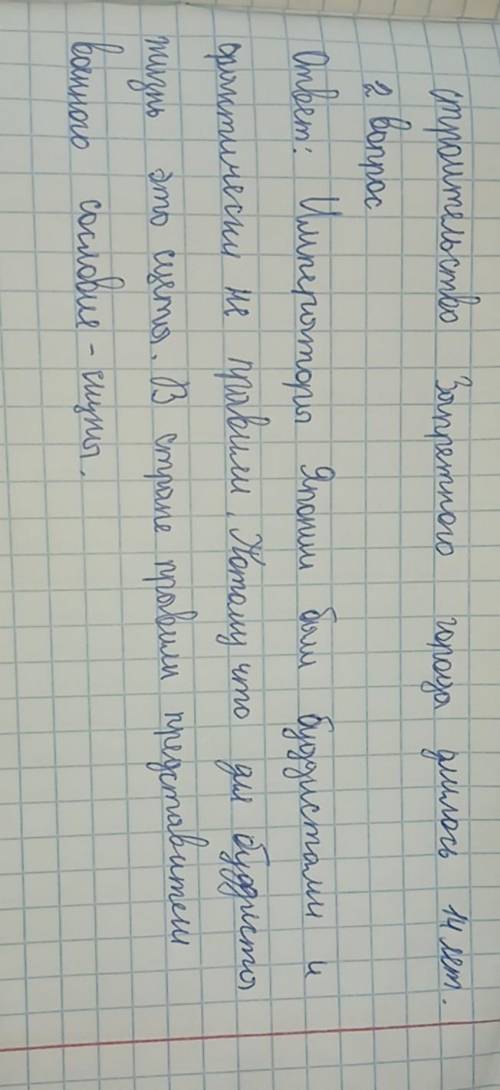 строительство Запретного города длилось 14 лет.
2 вопрос
Ответ: Императоры Японии были буддистами и
фактически не правили. Потому что для буддиста
жизнь это суета. В стране правили представители
военного сословия - сегуны.